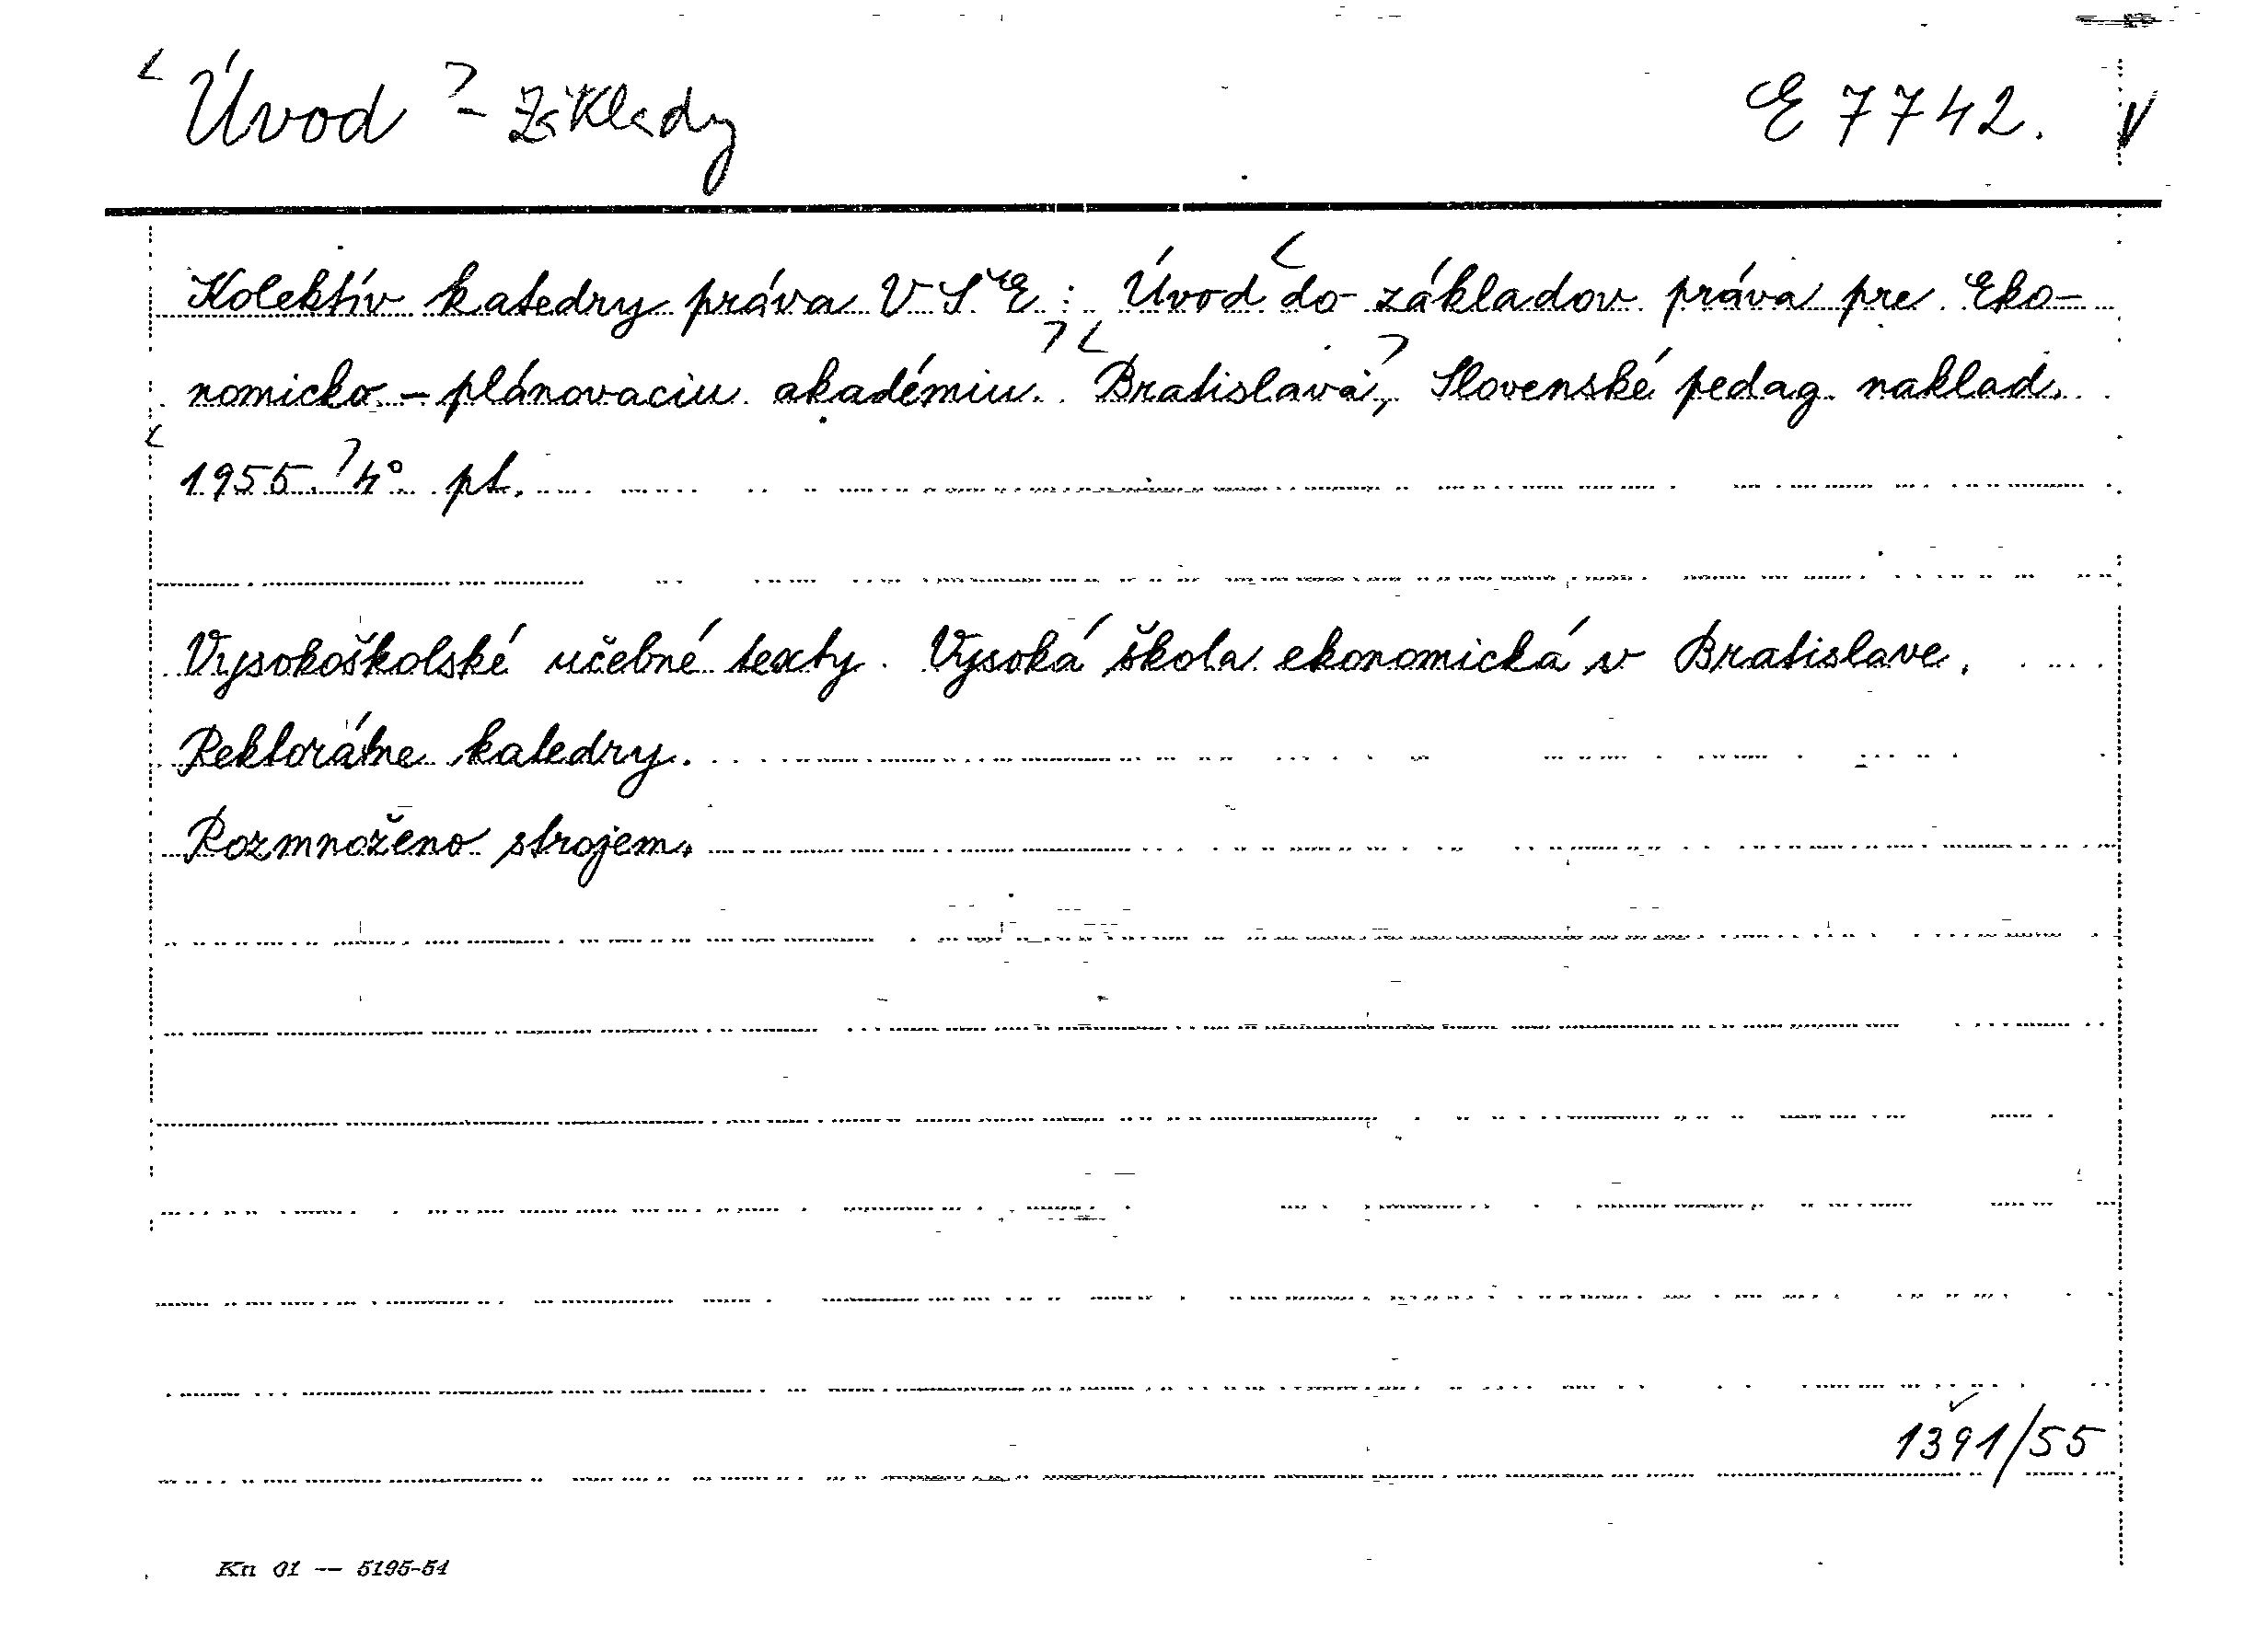 Úvod - základy E 7742. V
Kolektív katedry práva VŠE: Úvod do základov práva pre Eko-
nomicko-plánovaciu akadémiu. Bratislava, Slovenské pedag. naklad.
1955. 4° pt.
Vysokoškolské učebné texty. Vysoká škola ekonomická v Bratislave.
Rektorátne katedry.
Rozmnoženo strojem.
1391/55
Kn 01 — 5195-54